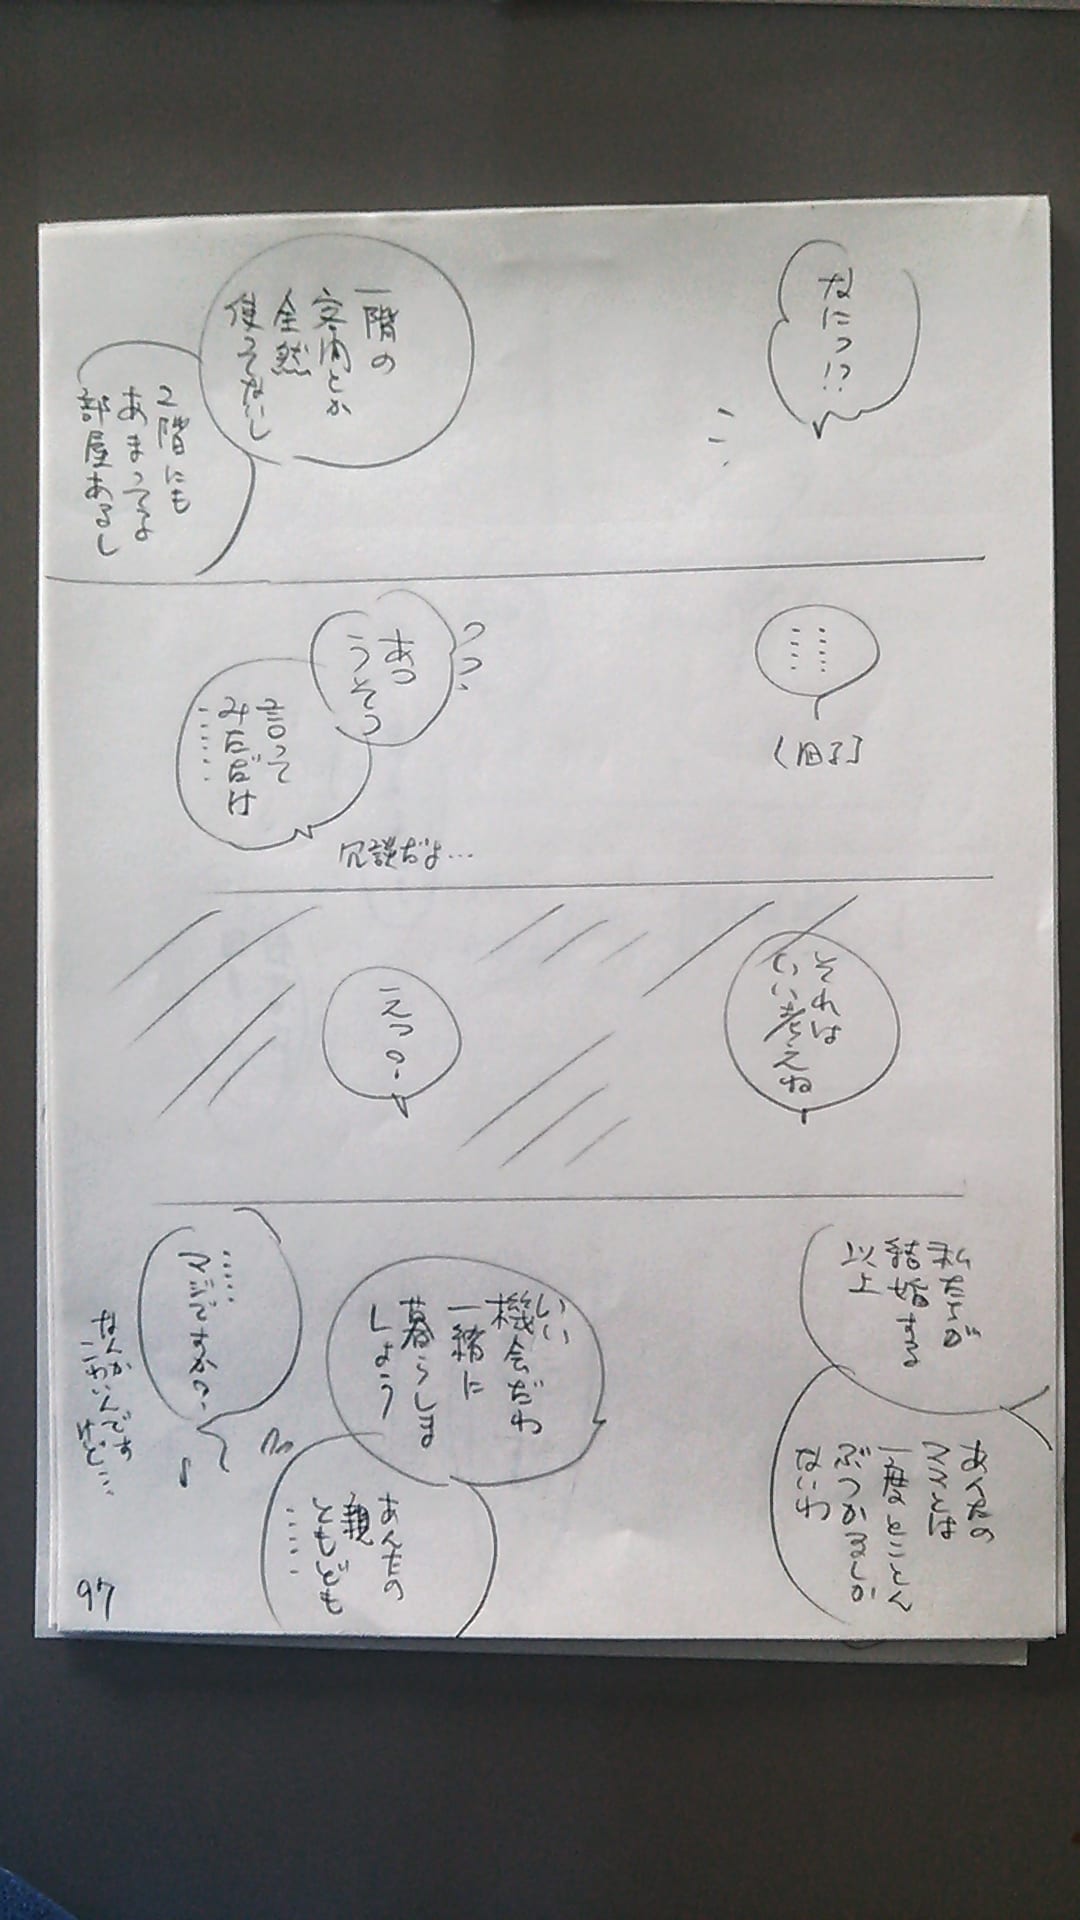 なにっ!?
一階の
客間とか
全然
使ってないし
2階にも
あまってる
部屋あるし
……
……
あっ
うそっ
言って
みただけ
……
冗談だよ…
それは
いい考えね
えっ?
私たちが
結婚する
以上
あんたの
ママとは
一度とことん
ぶつかるしか
ないわ
いい
機会だわ
一緒に
暮らしま
しょう
あんたの
親
ともども
……
……
マジですか?
なんか
こわいんです
けど…
97